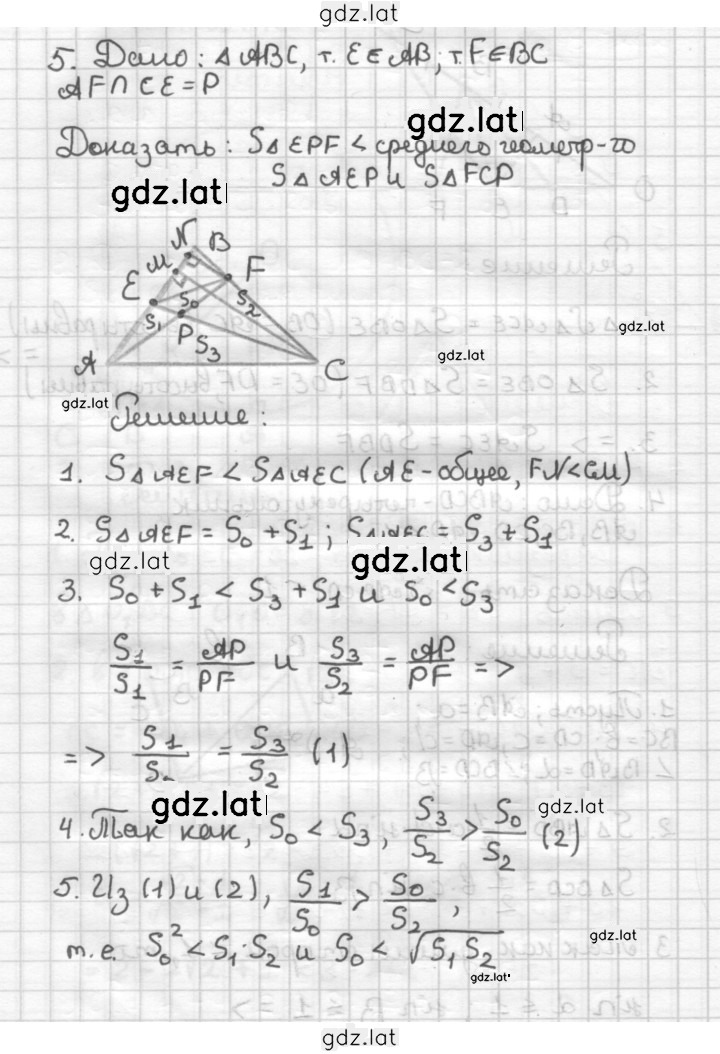 gdz.lat
5. Дано: △ABC, т. E∈AB; т. F∈BC
AF∩CE=P
gdz.lat
Доказать: S△EPF < среднего геометр-го
S△AEP и S△FCP
gdz.lat
N B
M
E F
S₀ S₂
S₁ P S₃
gdz.lat
A C
gdz.lat
gdz.lat
Решение:
1. S△AEF < S△AEC (AE-общее, FN<CM)
2. S△AEF = S₀ + S₁; S△AEC = S₃ + S₁
gdz.lat
gdz.lat
3. S₀ + S₁ < S₃ + S₁ и S₀ < S₃
S₁/S₁ = AP/PF и S₃/S₂ = AP/PF =>
=> S₁/S = S₃/S₂ (1)
gdz.lat
gdz.lat
4. Так как, S₀ < S₃, S₃/S₂ > S₀/S₂ (2)
5. Из (1) и (2), S₁/S₀ > S₀/S₂,
gdz.lat
т.е. S₀² < S₁·S₂ и S₀ < √S₁ S₂
gdz.lat
gdz.lat